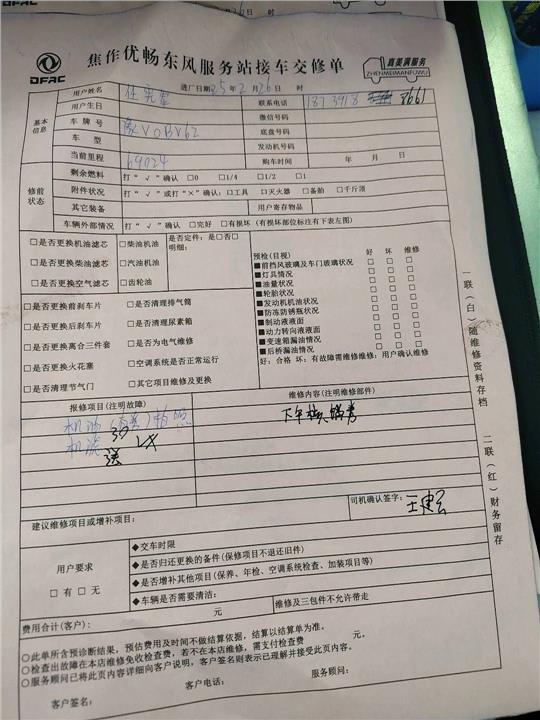 DFAC
焦作优畅东风服务站接车交修单
真美满服务
ZHENMEIMANFUWU
进厂日期25年2月26日
基本信息
用户姓名
联系电话 1873918 8661
用户生日
微信号码
车牌号 豫V0BV62
底盘号码
车型
发动机号码
当前里程 69024
购车时间 年 月 日
修前状态
剩余燃料 打“√”确认 □0 □1/4 □1/2 □1
附件状况 打“√”或打“×”确认：□工具 □灭火器 □备胎 □千斤顶
其它装备
用户寄存物品
车辆外部情况 打“√”确认 □完好 □有损坏（有损坏部位标注有下表左图）
□是否更换机油滤芯 □柴油机油 是否定件：是□否□
明细：
□是否更换柴油滤芯 □汽油机油
□是否更换空气滤芯 □齿轮油
□是否更换前刹车片 □是否清理排气筒
□是否更换后刹车片 □是否清理尿素箱
□是否更换离合三件套 □是否为电气维修
□是否更换火花塞 □空调系统是否正常运行
□是否清理节气门 □其它项目维修及更换
预检(目视) 好 坏 维修
■前挡风玻璃及车门玻璃状况 □ □ □
■灯具情况 □ □ □
■油量状况 □ □ □
■轮胎状况 □ □ □
■发动机机油状况 □ □ □
■防冻防锈瓶状况 □ □ □
■制动液液面 □ □ □
■动力转向液液面 □ □ □
■变速箱漏油情况 □ □ □
■后桥漏油情况 □ □ □
好：合格 坏：有故障需维修维修：用户确认维修
报修项目(注明故障)
维修内容(注明维修部件)
机滤
司机确认签字：
建议维修项目或增补项目：
用户要求
□有□无
◆交车时限
◆是否归还更换的备件(保修项目不退还旧件)
◆是否增补其他项目(保养、年检、空调系统检查、加装项目等)
◆车辆是否需要清洁：
元
维修及三包件不允许带走
费用合计(客户)：
○此单所含预诊断结果，预估费用及时间不做结算依据，结算以结算单为准。
○检查出故障在本店维修免收检查费，若不在本店维修，需支付检查费 元。
○服务顾问已将此页内容详细向客户说明，客户签名则表示已理解并接受此页内容。
客户签名： 客户电话： 服务顾问：
一联（白）随维修资料存档
二联（红）财务留存